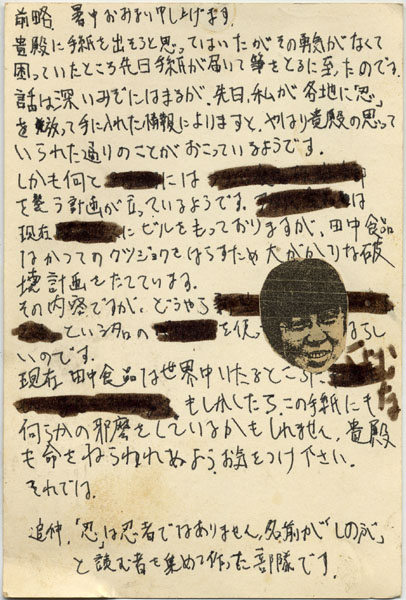 前略 暑中おみまい申し上げます。
貴殿に手紙を出そうと思ってはいたがその勇気がなくて
困っていたところ先日手紙が届いて筆をとるに至ったのです。
話は深いみぞにはまるが、先日、私が各地に「忍」
を放って手に入れた情報によりますと、やはり貴殿の思って
いられた通りのことがおこっているようです。
しかも何と には
を襲う計画が立っているようです。 は
現在 にビルをもっておりますが、田中食品
はかつてのクツジョクをはらすため大がかりな破
壊計画をたてています。
その内容ですが、どうやら
という名の を使 はらし
いのです。
現在田中食品は世界中いたるところに
、もしかしたら、この手紙にも
何らかの邪魔をしているかもしれません。貴殿
も命をねらわれぬようお気をつけ下さい。
それでは。
追伸、「忍」は忍者ではありません。名前が「しのぶ」
と読む者を集めて作った部隊です。